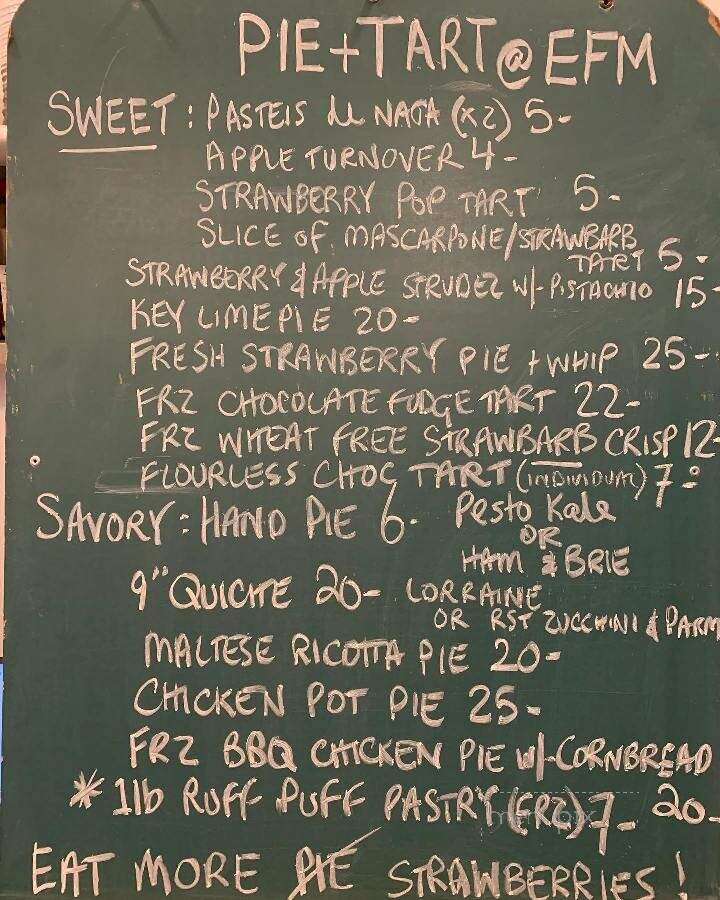 PIE+TART@EFM
SWEET: PASTEIS de NATA (x2) 5-
APPLE TURNOVER 4-
STRAWBERRY POP TART 5-
SLICE OF MASCARPONE/STRAWBARB
TART 5-
STRAWBERRY & APPLE STRUDEL W/-PISTACHIO 15-
KEY LIME PIE 20-
FRESH STRAWBERRY PIE + WHIP 25-
FRZ CHOCOLATE FUDGE TART 22-
FRZ WHEAT FREE STRAWBARB CRISP 12-
FLOURLESS CHOC TART (INDIVIDUAL) 7-
SAVORY: HAND PIE 6- Pesto Kale
OR
HAM & BRIE
9" QUICHE 20- LORRAINE
OR RST ZUCCHINI & PARM
MALTESE RICOTTA PIE 20-
CHICKEN POT PIE 25-
FRZ BBQ CHICKEN PIE w/-CORNBREAD
20-
* 1lb RUFF PUFF PASTRY (FRZ) 7-
EAT MORE PIE STRAWBERRIES!